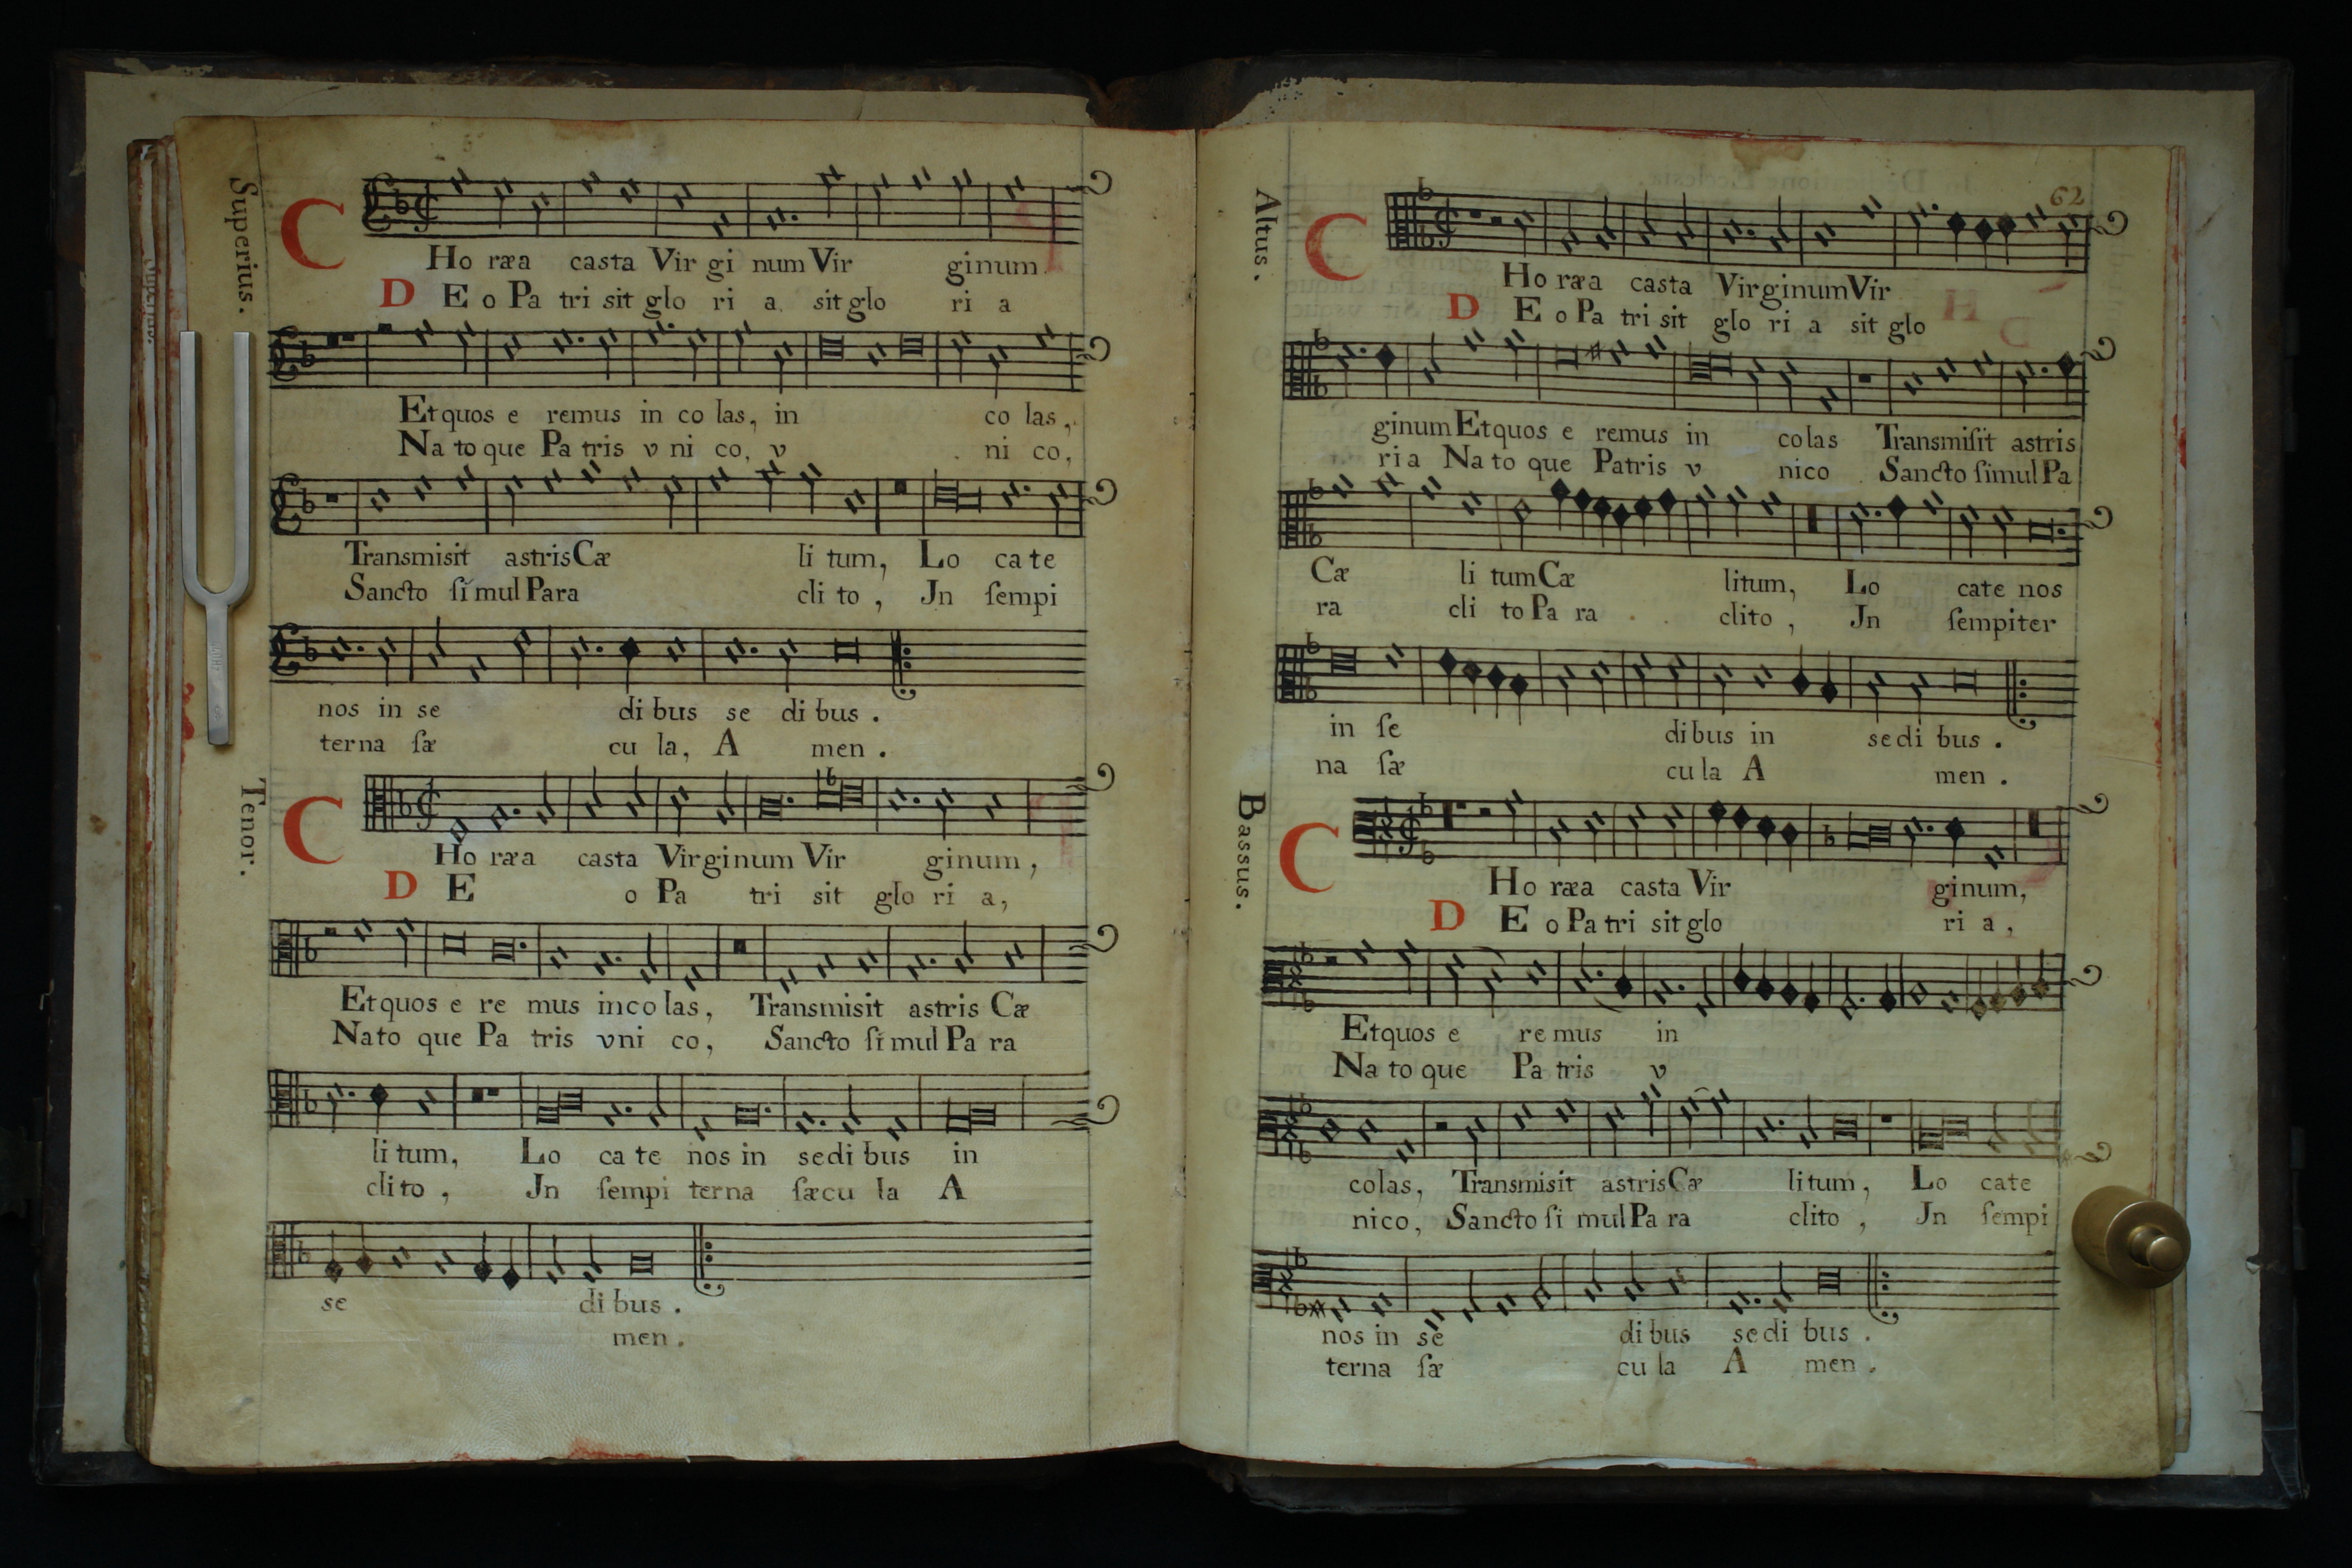 Superius.
C Ho ræa casta Vir gi num Vir ginum
D E o Pa tri sit glo ri a sit glo ri a
Et quos e remus in co las, in co las,
Na to que Pa tris v ni co, v ni co,
Transmisit astris Cæ li tum, Lo ca te
Sancto ſi mul Para cli to, Jn ſempi
nos in se di bus se di bus.
terna ſæ cu la, A men.
Tenor.
C Ho ræa casta Virginum Vir ginum,
D E o Pa tri sit glo ri a,
Et quos e re mus inco las, Transmisit astris Cæ
Nato que Pa tris vni co, Sancto ſi mul Pa ra
li tum, Lo ca te nos in sedi bus in
cli to, Jn ſempi terna ſæcu la A
se di bus.
men.
62
Altus.
C Ho ræa casta Virginum Vir
D E o Pa tri sit glo ri a sit glo
ginum Et quos e remus in colas Transmiſit astris
ria Na to que Patris v nico Sancto ſimul Pa
Cæ li tum Cæ litum, Lo cate nos
ra cli to Pa ra clito, Jn ſempiter
in ſe dibus in sedi bus.
na ſæ cu la A men.
Bassus.
C Ho ræa casta Vir ginum,
D E o Pa tri sit glo ri a,
Et quos e remus in
Na to que Pa tris v
colas, Transmisit astris Cæ litum, Lo cate
nico, Sancto ſi mul Pa ra clito, Jn ſempi
nos in se di bus sedi bus.
terna ſæ cu la A men.